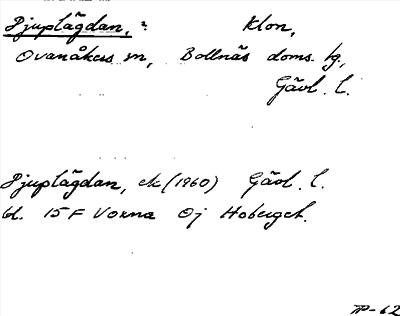 Djuplägdan, ?   Klon,
Ovanåkers sn, Bollnäs doms. lg.,
Gävl. l.
Djuplägdan, ek (1960) Gävl. l.
bl. 15 F Voxna Oj Hoberget.
TP-62